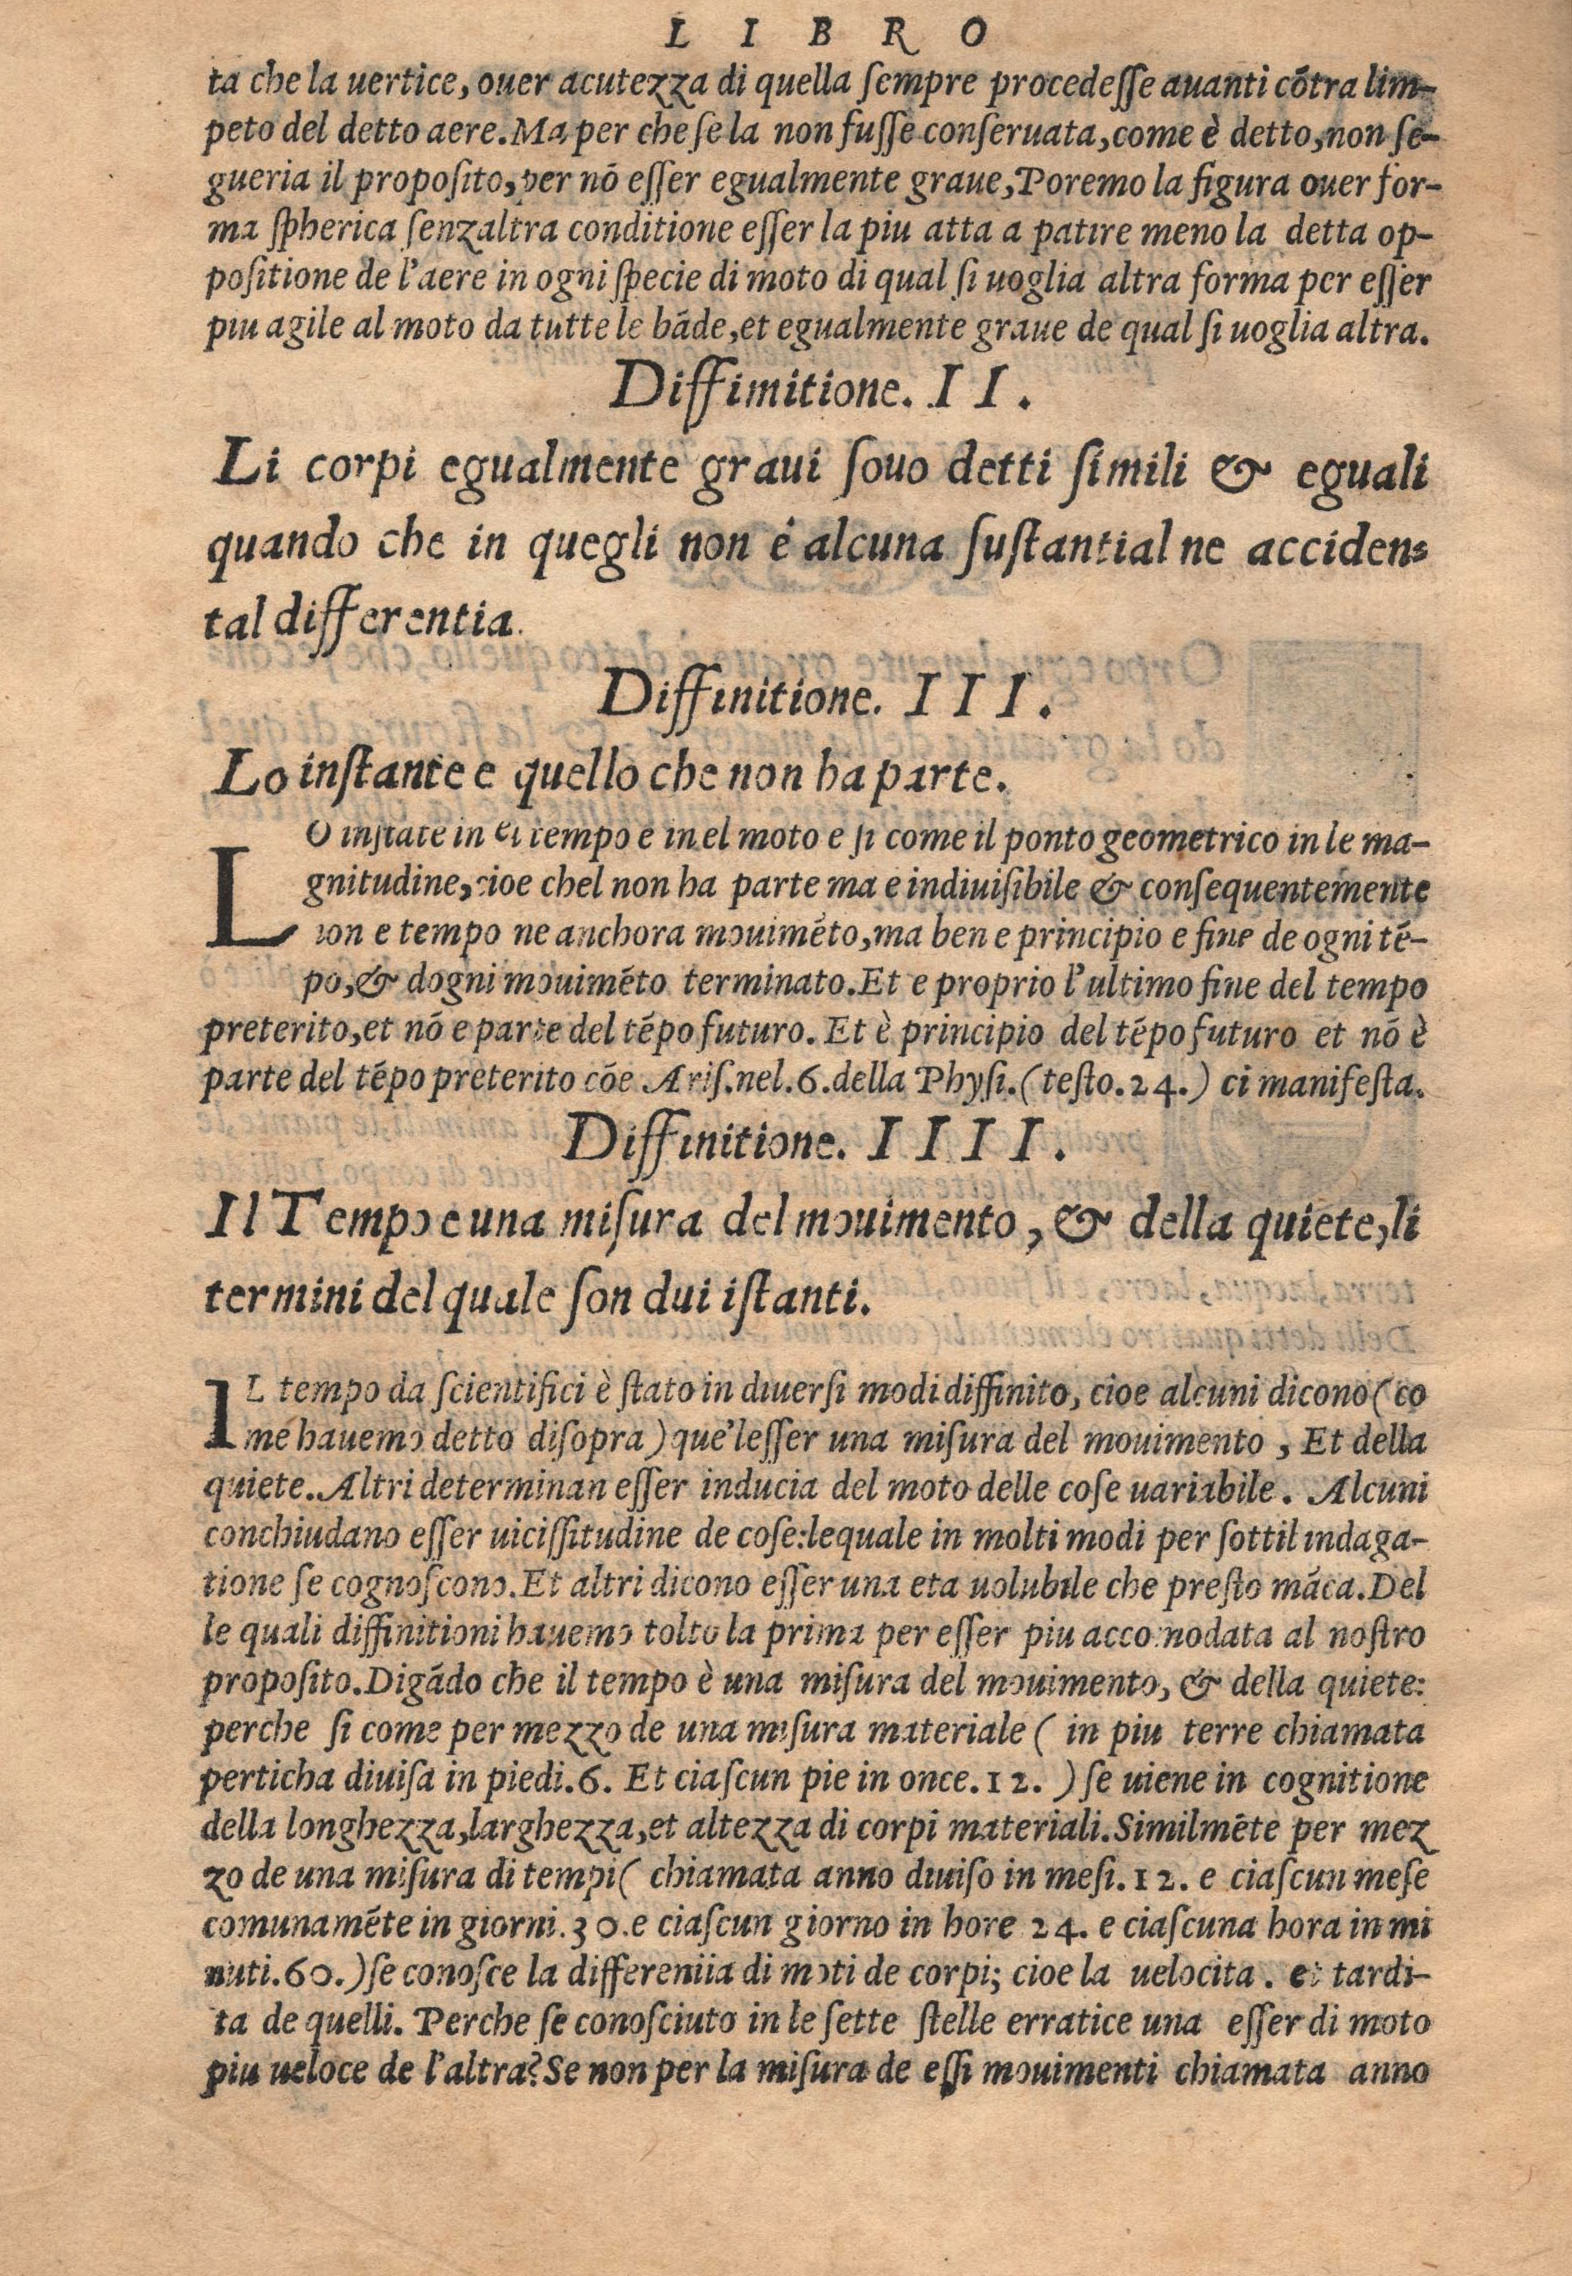 LIBRO
ta che la uertice, ouer acutezza di quella ſempre procedeſſe auanti cõtra lim-
peto del detto aere. Ma per che ſe la non fuſſe conſeruata, come è detto, non ſe-
gueria il propoſito, per nõ eſſer egualmente graue, Poremo la figura ouer for-
ma ſpherica ſenzaltra conditione eſſer la piu atta a patire meno la detta op-
poſitione de l'aere in ogni ſpecie di moto di qual ſi uoglia altra forma per eſſer
piu agile al moto da tutte le bãde, et egualmente graue de qual ſi uoglia altra.
Diffimitione. II.
Li corpi egualmente graui ſouo detti ſimili & eguali
quando che in quegli non é alcuna ſuſtantial ne acciden-
tal differentia.
Diffinitione. III.
Lo inſtante e quello che non ha parte.
LO inſtãte in el tempo e in el moto e ſi come il ponto geometrico in le ma-
gnitudine, cioe chel non ha parte ma e indiuiſibile & conſequentemente
non e tempo ne anchora mouimẽto, ma ben e principio e fine de ogni tẽ-
po, & dogni mouimẽto terminato. Et e proprio l'ultimo fine del tempo
preterito, et nõ e parte del tẽpo futuro. Et è principio del tẽpo futuro et nõ è
parte del tẽpo preterito cõe Ariſ. nel. 6. della Phyſi. (teſto. 24.) ci manifeſta.
Diffinitione. IIII.
Il Tempo e una miſura del mouimento, & della quiete, li
termini del quale ſon dui iſtanti.
IL tempo da ſcientifici è ſtato in diuerſi modi diffinito, cioe alcuni dicono (co
me hauemo detto diſopra) que'leſſer una miſura del mouimento, Et della
quiete. Altri determinan eſſer inducia del moto delle coſe uariabile. Alcuni
conchiudano eſſer uiciſſitudine de coſe: lequale in molti modi per ſottil indaga-
tione ſe cognoſcono. Et altri dicono eſſer una eta uolubile che preſto mãca. Del
le quali diffinitioni hauemo tolto la prima per eſſer piu accomodata al noſtro
propoſito. Digãdo che il tempo è una miſura del mouimento, & della quiete:
perche ſi come per mezzo de una miſura materiale (in piu terre chiamata
perticha diuiſa in piedi. 6. Et ciaſcun pie in once. 12.) ſe uiene in cognitione
della longhezza, larghezza, et altezza di corpi materiali. Similmẽte per mez
zo de una miſura di tempi (chiamata anno diuiſo in meſi. 12. e ciaſcun meſe
comunamẽte in giorni. 30. e ciaſcun giorno in hore 24. e ciaſcuna hora in mi
nuti. 60.) ſe conoſce la differeniia di moti de corpi; cioe la uelocita. et tardi-
ta de quelli. Perche ſe conoſciuto in le ſette ſtelle erratice una eſſer di moto
piu ueloce de l'altra? Se non per la miſura de eſſi mouimenti chiamata anno